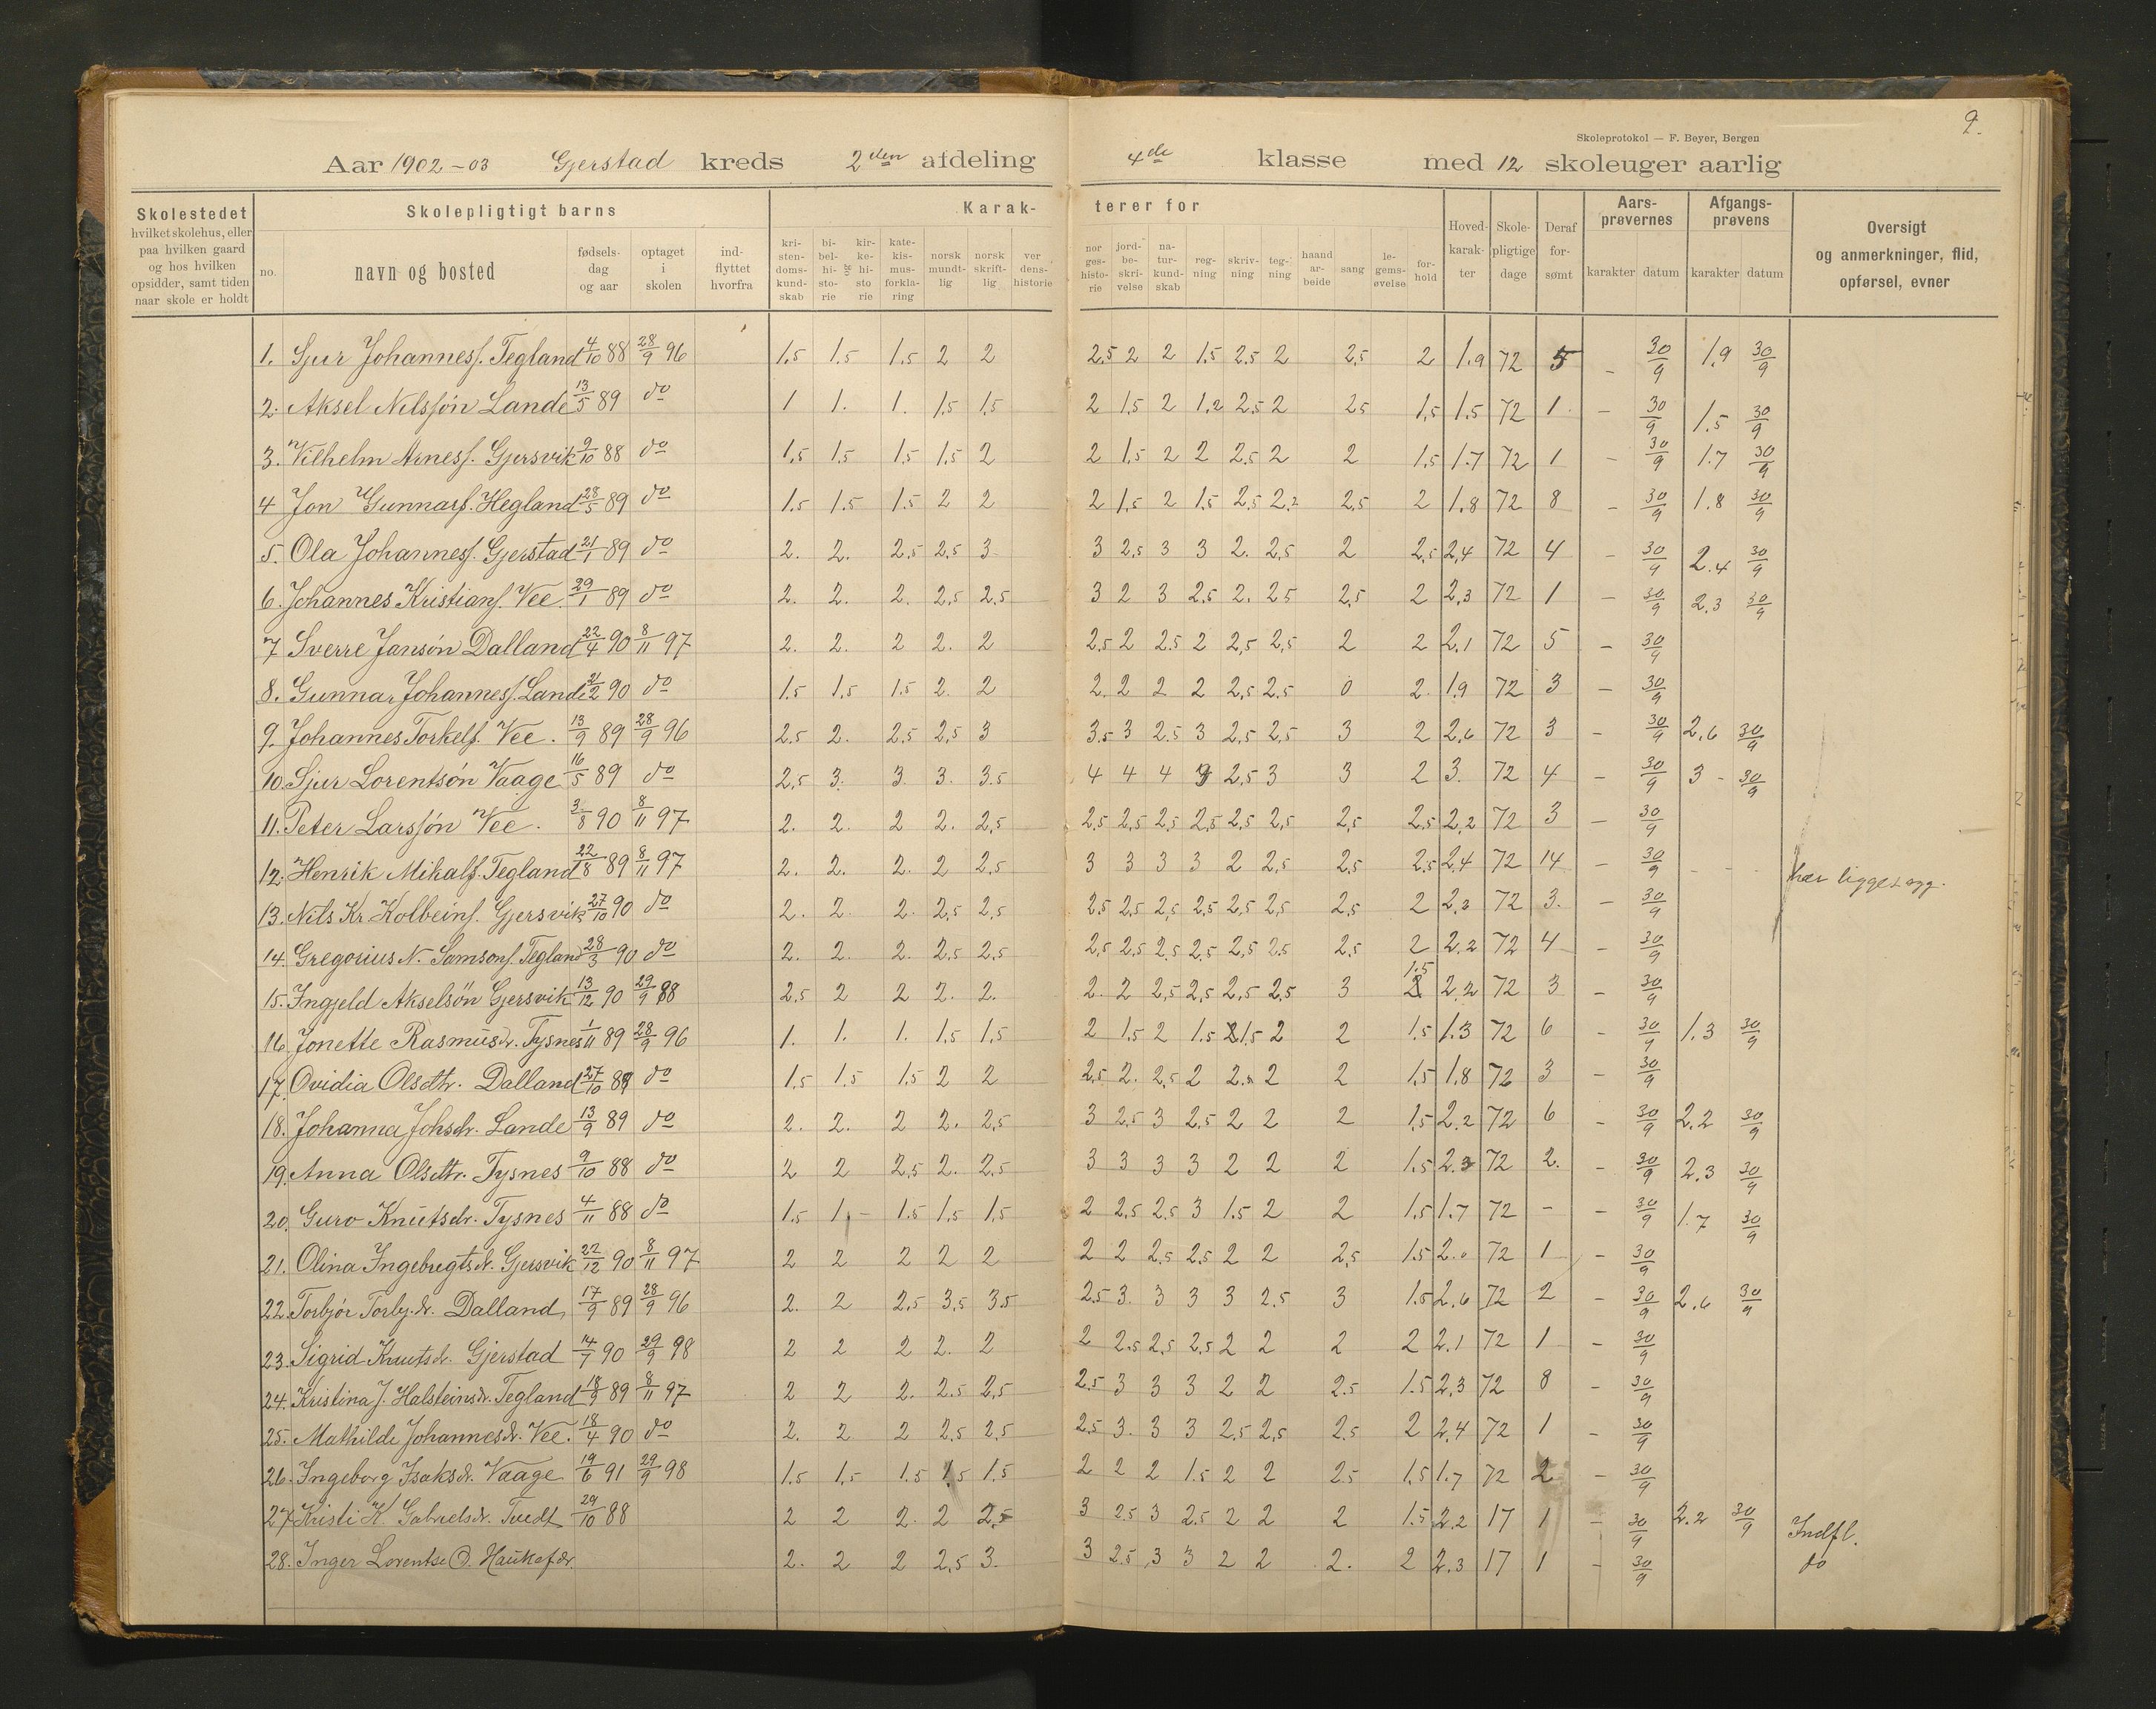 9.
Skoleprotokol — F. Beyer, Bergen
Aar 1902-03 Gjerstad kreds 2den afdeling 4de klasse med 12 skoleuger aarlig
Skolestedet hvilket skolehus, eller paa hvilken gaard og hos hvilken opsidder, samt tiden naar skole er holdt
Skolepligtigt barns
no. navn og bosted fødsels-dag og aar optaget i skolen ind-flyttet hvorfra
Karak-terer for
kri-sten-doms-kund-skab bi-bel-hi-sto-rie og kir-ke-hi-sto rie kate-kis-mus-forkla-ring norsk mundt-lig norsk skrift-lig ver dens-historie nor ges-histo-rie jord-be-skri-velse na-tur-kund-skab reg-ning skriv-ning teg-ning haand ar-beide sang le-gems-øvelse for-hold
Hoved-karak-ter Skole-pligtige dage Deraf for-sømt
Aars-prøvernes karakter datum
Afgangs-prøvens karakter datum
Oversigt og anmerkninger, flid, opførsel, evner
1. Sjur Johanness. Tegland 4/10 88 28/9 96 1,5 1.5 1.5 2 2 2.5 2 2 1.5 2.5 2 2,5 2 1.9 72 5 – 30/9 1.9 30/9
2. Aksel Nilssøn Lande 13/5 89 do 1 1. 1. 1,5 1,5 2 1,5 2 1,2 2,5 2 2,5 1,5 1.5 72 1 – 30/9 1.5 30/9
3. Vilhelm Arness. Gjersvik 9/10 88 do 1,5 1,5 1.5 1,5 2 2 1,5 2 2 2,5 2 2 1,5 1.7 72 1 – 30/9 1.7 30/9
4 Jon Gunnars. Hegland 28/5 89 do 1.5 1.5 1.5 2 2 2 1,5 2 1.5 2,5 2,2 2,5 2 1.8 72 8 – 30/9 1.8 30/9
5. Ola Johanness. Gjerstad 21/1 89 do 2. 2. 2,5 2,5 3 3 2,5 3 3 2. 2,5 2 2,5 2,4 72 4 – 30/9 2.4 30/9
6. Johannes Kristians. Vee. 29/1 89 do 2. 2. 2. 2,5 2,5 3 2 3 2.5 2. 2.5 2,5 2 2,3 72 1 – 30/9 2.3 30/9
7 Sverre Jansøn Dalland 22/4 90 8/11 97 2. 2. 2 2. 2 2,5 2 2.5 2 2,5 2,5 2 2 2.1 72 5 – 30/9
8. Gunnar Johanness. Lande 21/2 90 do 1.5 1,5 1.5 2. 2 2. 2 2 2 2,5 2,5 0 2. 1.9 72 3 – 30/9
9. Johannes Torkels. Vee. 13/9 89 28/9 96 2.5 2. 2,5 2,5 3 3,5 3 2.5 3 2,5 2,5 3 2 2,6 72 3 – 30/9 2.6 30/9
10. Sjur Lorentsøn Vaage 16/5 89 do 2,5 3. 3. 3. 3.5 4 4 4 2,5 3 3 2 3. 72 4 – 30/9 3 - 30/9
11. Peter Larssøn Vee. 3/8 90 8/11 97 2. 2. 2 2. 2,5 2,5 2,5 2,5 2,5 2,5 2,5 2,5 2,5 2,2 72 3 – 30/9
12. Henrik Mikals. Tegland 22/8 89 8/11 97 2. 2. 2. 2 2,5 3 3 3 3 2 2,5 2,5 2.5 2.4 72 14 – 30/9 - -
13. Nils Kr. Kolbeins. Gjersvik 27/10 90 do 2. 2. 2. 2,5 2,5 2,5 2,5 2,5 2,5 2,5 2,5 2,5 2 2,3 72 3. – 30/9
14. Gregorius N. Samsons. Tegland 28/3 90 do 2. 2. 2. 2,5 2,5 2,5 2,5 2,5 2,5 2,5 2.5 2,5 2 2.2 72 4 – 30/9
15. Ingjeld Akselsön Gjersvik 13/12 90 29/9 88 2,5 2 2 2. 2. 2. 2 2,5 2,5 2,5 2,5 3 1.5 2,2 72 3 – 30/9
16. Jonette Rasmusdr. Tysnes 1/11 89 28/9 96 1. 1. 1. 1,5 1,5 2 1.5 2 1.5 1,5 2 2 1.5 1.3 72 6 – 30/9 1.3 30/9
17. Ovidia Olsdtr. Dalland 27/10 do 1,5 1,5 1,5 2 2 2,5 2. 2,5 2 2 2 1,5 1,8 72 3 – 30/9
18. Johanna Johsdr. Lande 13/9 89 do 2. 2. 2 2. 2,5 3 2.5 3 2.5 2 2 2 1,5 2.2 72 6 – 30/9 2.2 30/9
19. Anna Olsdtr. Tysnes 9/10 88 do 2 2 2,5 2. 2,5 3 3 3 3 2 2 2 1.5 2.3 72 2. – 30/9 2.3 30/9
20. Guro Knutsdr. Tysnes 4/11 88 do 1.5 1, – 1.5 1,5 1,5 2 2,5 2.5 3 1.5 2 2 1,5 1.7 72 – – 30/9 1.7 30/9
21. Olina Ingebregtsdr. Gjersvik 22/12 90 8/11 97 2 2 2 2 2 2 2 2,5 2,5 2 2 2,5 1.5 2.0 72 1 – 30/9
22. Torbjør Torbj.dr. Dalland, 17/9 89 28/9 96 2. 2 2,5 3,5 3.5 2.5 3. 3 3 3 2,5 3 1.5 2.6 72 2 – 30/9 2.6 30/9
23. Sigrid Knutsdr. Gjerstad 14/7 90 29/9 98 2 2 2 2. 2 2 2.5 2,5 2,5 2 2 2 2 2.1 72 1 – 30/9
24. Kristina J. Halsteinsdr. Tegland 18/9 89 8/11 97 2 2 2. 2.5 2,5 2.5 3 3 3 2 2 2.5 1.5 2,3 72 8 – 30/9
25. Mathilde Johannesdr. Vee. 18/4 90 do 2. 2 2 2,5 2.5 2.5 3. 3 3 2.5 2,5 2.5 2 2,4 72 1 – 30/9
26. Ingeborg Isaksdr. Vaage 19/6 91 29/9 98 1.5 1,5 1.5 1.5 1.5 2 2 2 1.5 2 2 2.5 1,5 1.7 72 2 – 30/9
27 Kristi K. Gabrielsdr. Tvedt 29/10 88 2 2 2. 2 2,5 3 2.5 3 2.5 2 2 2 1.5 2.2 17 1 – 30/9 2.2 30/9 Indfl.
28. Inger Lorentse O. Haukasdr. 2. 2 2 2,5 3. 3 2.5 3 3 2 2 2. 2 2.3 17 1 – 30/9 do